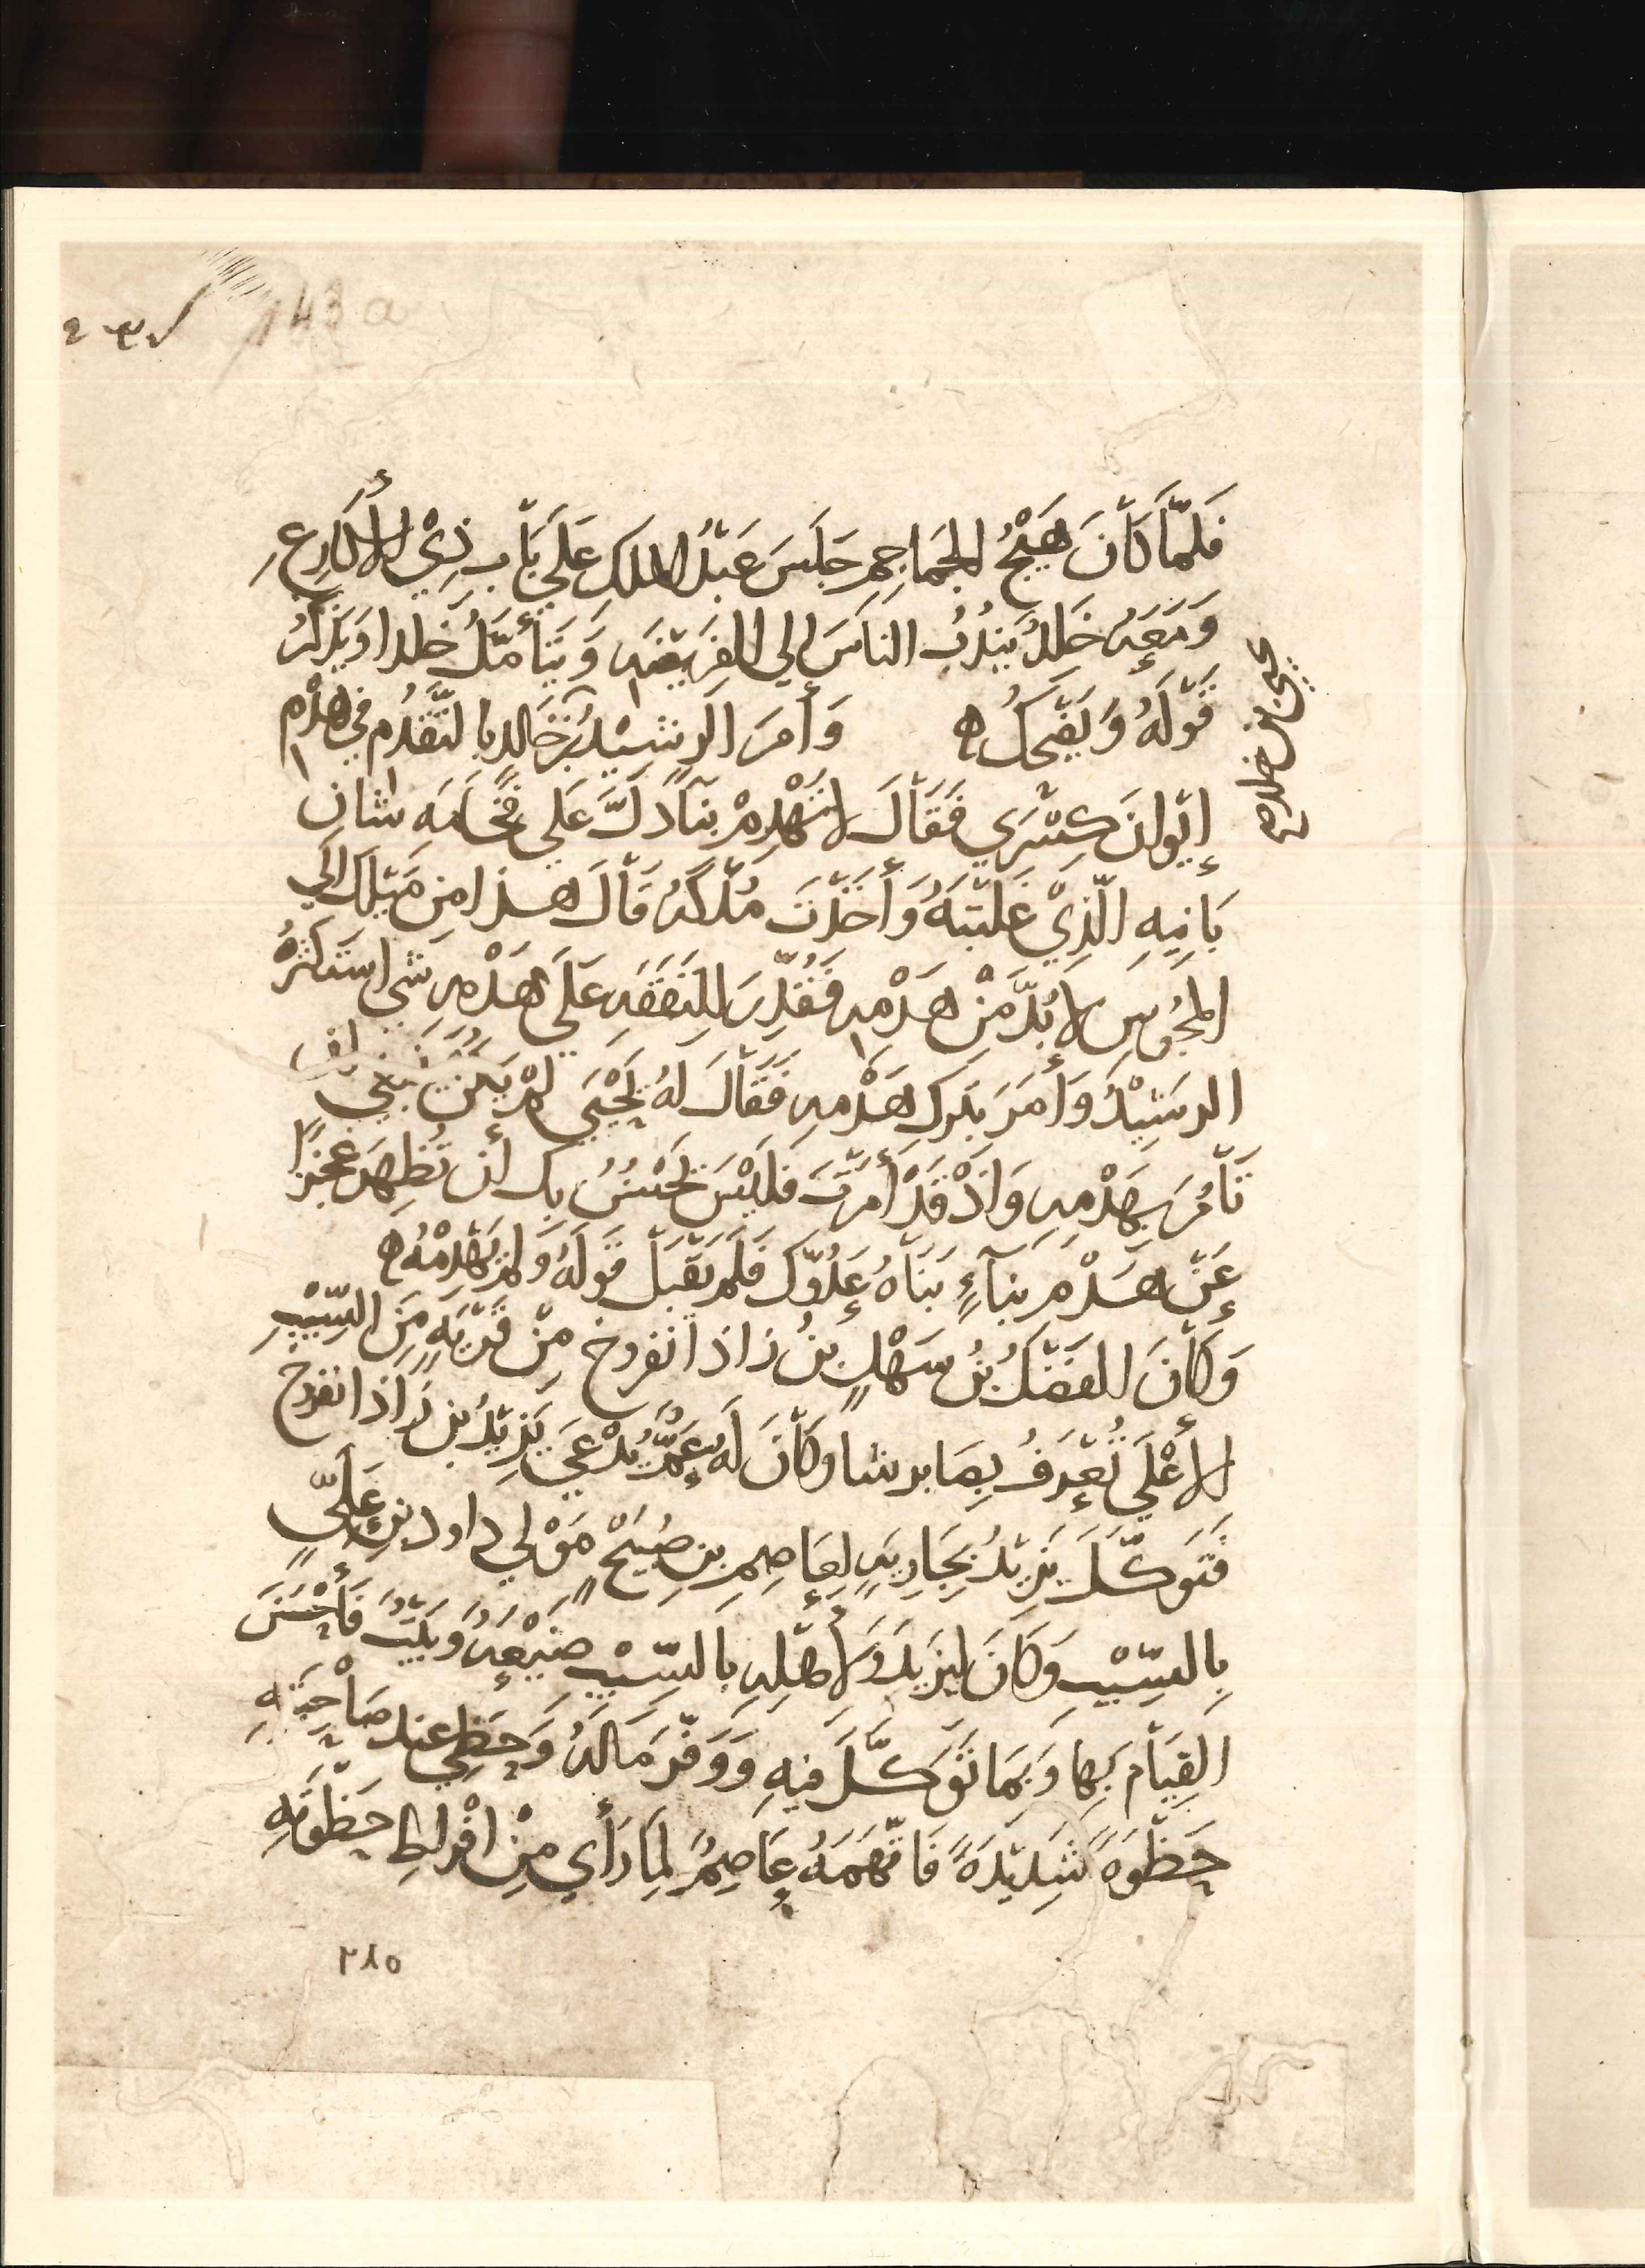 143a
فَلَمَّا كَانَ هَيْجُ الجَمَاجِمِ جَلَسَ عَبْدُ الملكِ عَلَي بَابِ ذِيْ الأَكَارِعِ
وَمَعَهُ خَلدُ يَنْدُبُ الناسَ إلي الفَرِيضَه وَيَتَأَمَّلُ خلدا وَيَذْكُرُ
قَوْلَهُ وَيَضْحَكُ ه وَأَمَرَ الرشيْدُ يحيى بن خَالدٍ بالتَّقَدُّم في هَدْم
يحيى بن خلد
إيْوانَ كِسْرَي فَقَالَ لا تَهْدِمْ بنآءً دَلَّ عَلي فَخَامَهِ شان
بَانِيهِ الَّذِيْ غَلَبْتَهُ وَأَخَذْتَ مُلْكَهُ قَالَ هذا من مَيْلِكَ إلي
المَجُوسِ لا بُدَّ مِنْ هَدْمِهِ فَقُدِّرَ لِلنَفَقَهِ عَلَي هَدْمِهِ شي استَكثَرَهُ
الرشيْدُ وَأَمَرَ بترك هَدْمِهِ فَقَالَ لَهُ يَحْيَي لَمْ يَكُنْ يَنْبَغِي لك أن
تَأْمُرَ بِهَدْمِهِ وَاذْ قَدْ أَمَرْتَ فَلَيْسَ يَحْسُنُ بك أن تُظهِرَ عَجْزًا
عَنْ هَدْمِ بِنَآءٍ بَنَاهُ عَدُوُّكَ فَلَمْ يَقْبَلْ قَولَهُ وَلم يَهْدِمْهُ ه
وَكَانَ الفَضْلُ بْنُ سَهْلٍ بنُ زاذانفروخ مِنْ قَرْيَةٍ مِنَ السِّيْبِ
الأَعْلَي تُعْرَفُ بِصَابرنشا وكَانَ لَهُ عَمٌّ يُدْعَي يَزِيْدُ بن زَاذانفروخ
فَتَوَكَّلَ يَزِيْدُ بِجَارِيَهٍ لِعَاصِمِ بن صُبَيْحٍ مَوْلَي داود بنِ عَلِيٍّ
بِالسِّيْبِ وَكَانَ ليزيدَ وَلأَهْلِهِ بِالسِّيْبِ ضَيْعَهُ وَبَيْتُ فَأَحْسَنَ
القِيَامَ بِها وَبِمَا تَوَكَّلَ فيهِ وَوَفَّرَ مَالَهُ وَحَظِيَ عند صَاحِبَتِهِ
حَظْوَهً شَدِيْدَهً فَاتَّهَمَهُ عَاصِمُ لِمَا رَأَي مِنْ افْراطِ حَظْوَتِهِ
٢٨٥